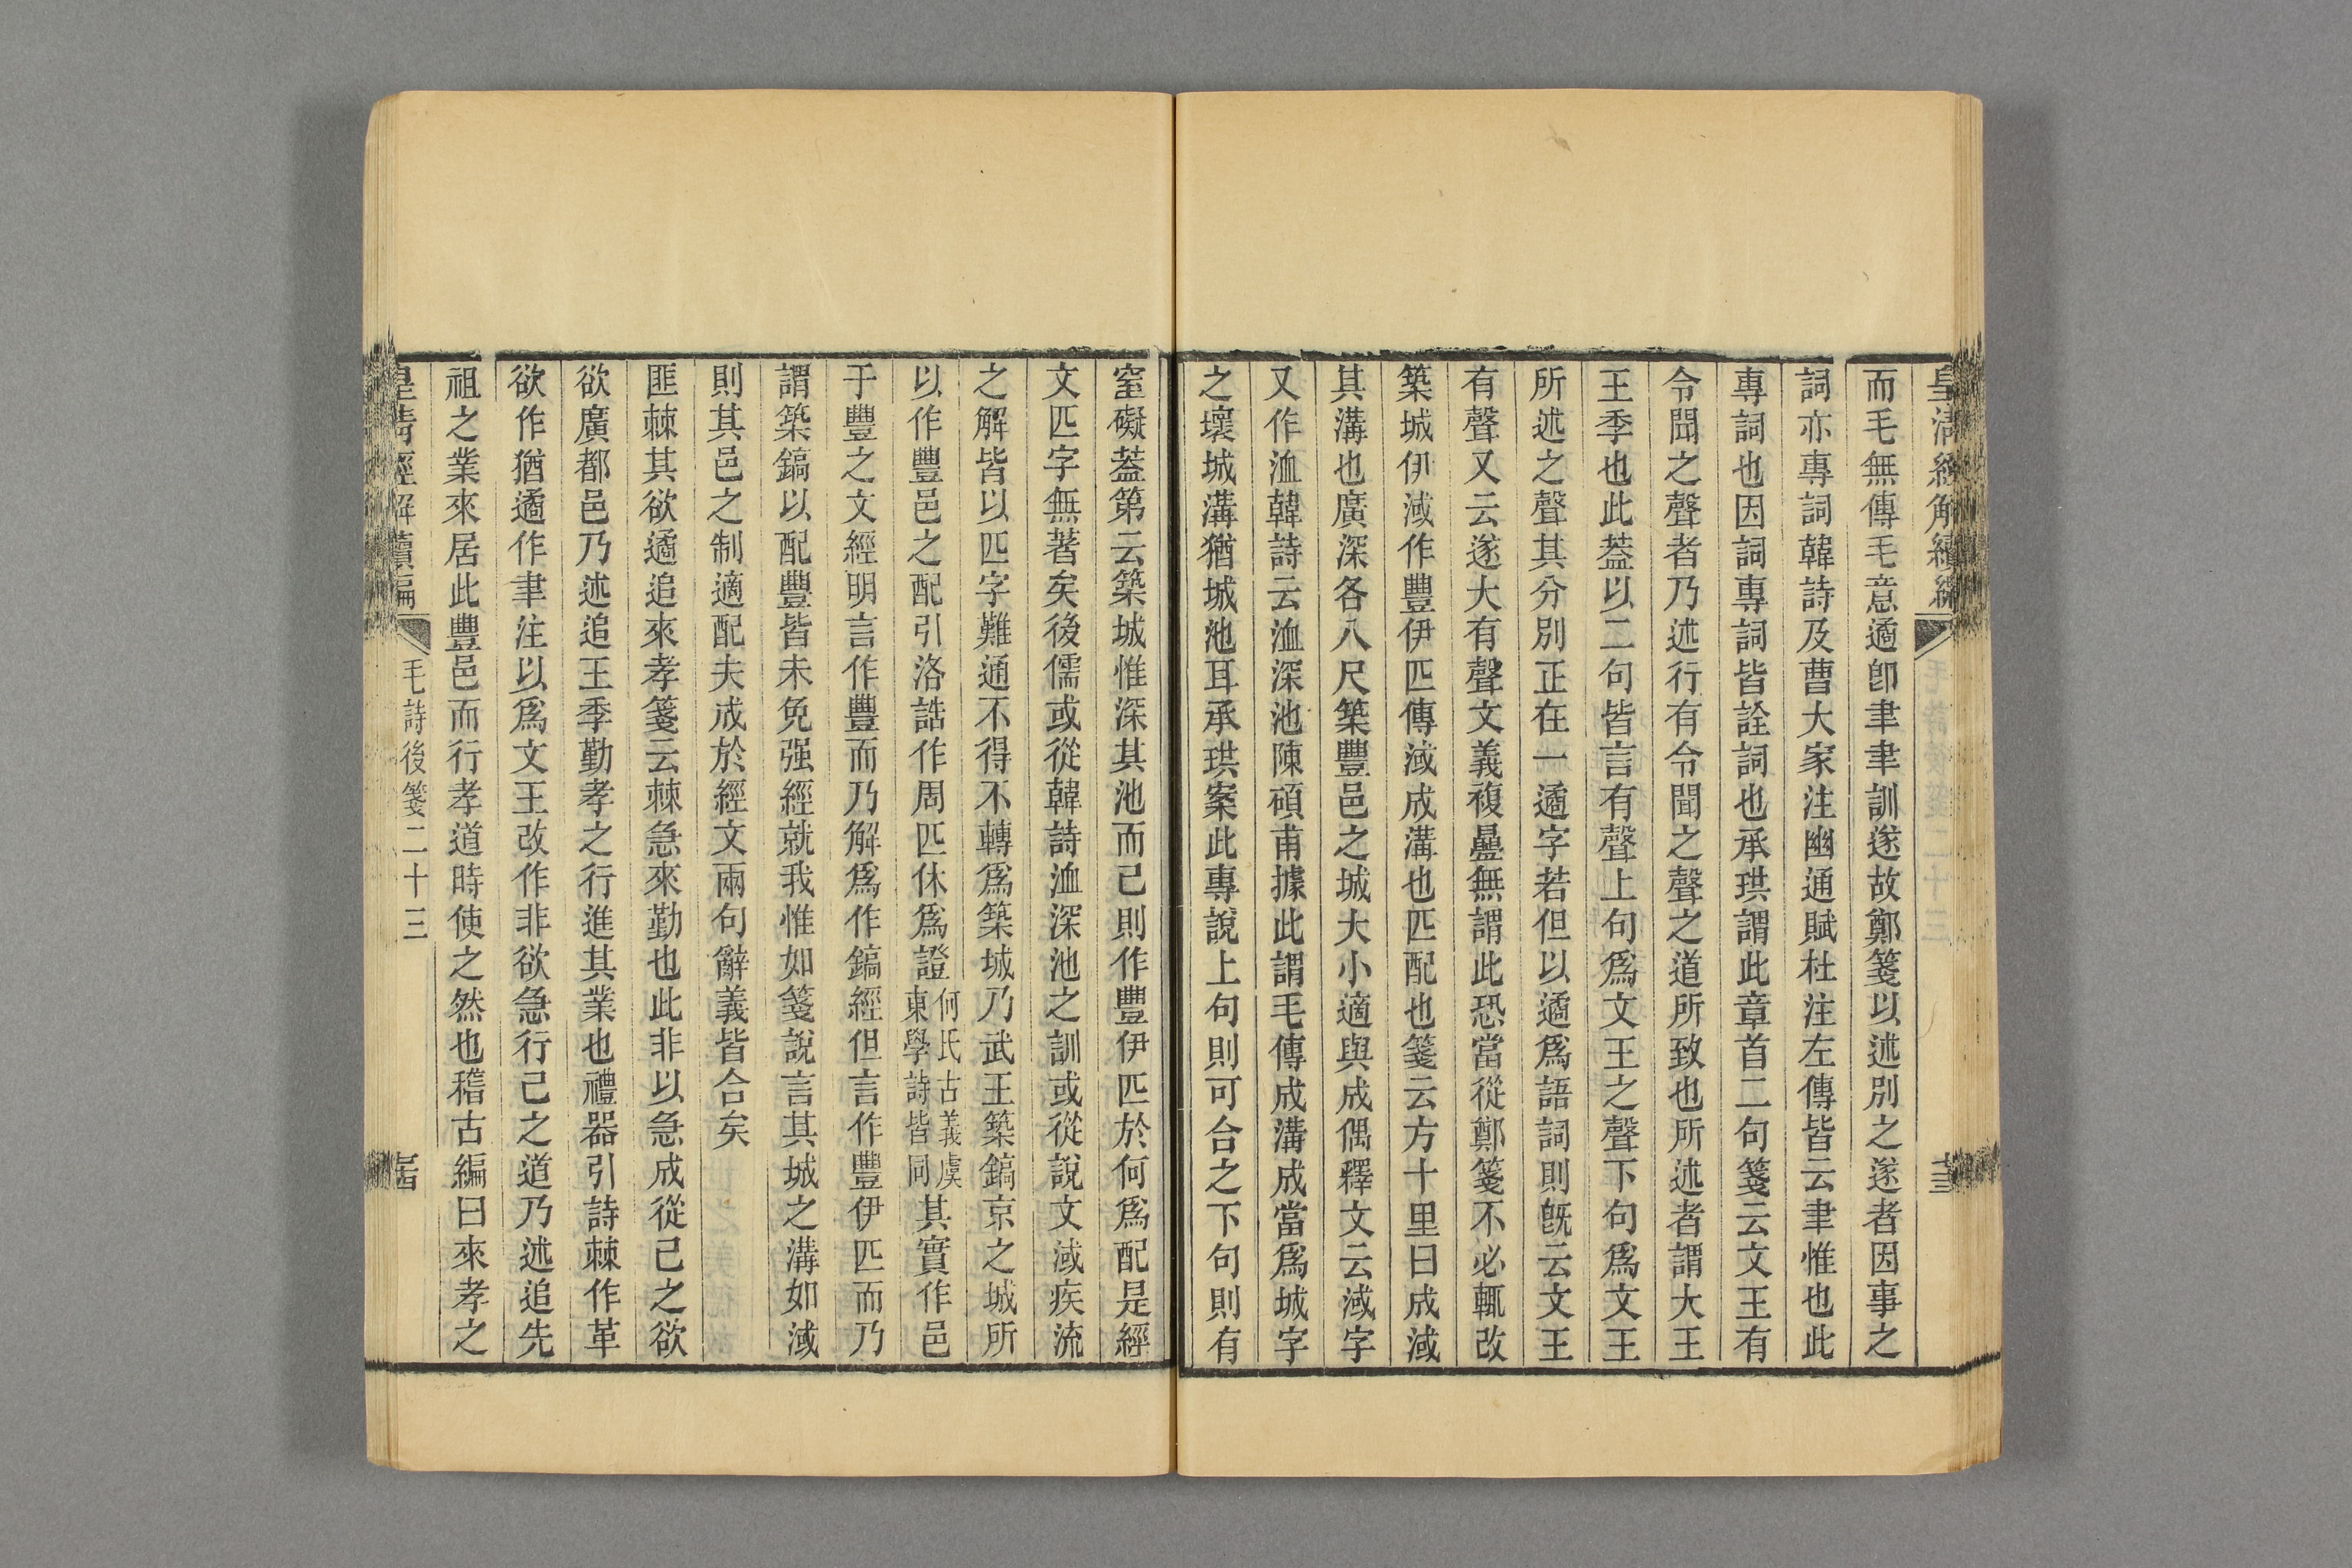 皇清經解續編
而毛無傳毛意遹卽聿聿訓遂故鄭箋以述別之遂者因事之
詞亦專詞韓詩及曹大家注幽通賦杜注左傳皆云聿惟也此
專詞也因詞專詞皆詮詞也承珙謂此章首二句箋云文王有
令聞之聲者乃述行有令聞之聲之道所致也所述者謂大王
王季也此葢以二句皆言有聲上句爲文王之聲下句爲文王
所述之聲其分別正在一遹字若但以遹爲語詞則旣云文王
有聲又云遂大有聲文義複疊無謂此恐當從鄭箋不必輒改
築城伊淢作豐伊匹傳淢成溝也匹配也箋云方十里曰成淢
其溝也廣深各八尺築豐邑之城大小適與成偶釋文云淢字
又作洫韓詩云洫深池陳碩甫據此謂毛傳成溝成當爲城字
之壞城溝猶城池耳承珙案此專說上句則可合之下句則有
窒礙葢第云築城惟深其池而已則作豐伊匹於何爲配是經
文匹字無著矣後儒或從韓詩洫深池之訓或從說文淢疾流
之解皆以匹字難通不得不轉爲築城乃武王築鎬京之城所
以作豐邑之配引洛誥作周匹休爲證何氏古義虞東學詩皆同其實作邑
于豐之文經明言作豐而乃解爲作鎬經但言作豐伊匹而乃
謂築鎬以配豐皆未免强經就我惟如箋說言其城之溝如淢
則其邑之制適配夫成於經文兩句辭義皆合矣
匪棘其欲遹追來孝箋云棘急來勤也此非以急成從己之欲
欲廣都邑乃述追王季勤孝之行進其業也禮器引詩棘作革
欲作猶遹作聿注以爲文王改作非欲急行己之道乃述追先
祖之業來居此豐邑而行孝道時使之然也稽古編曰來孝之
皇清經解續編
毛詩後箋二十三